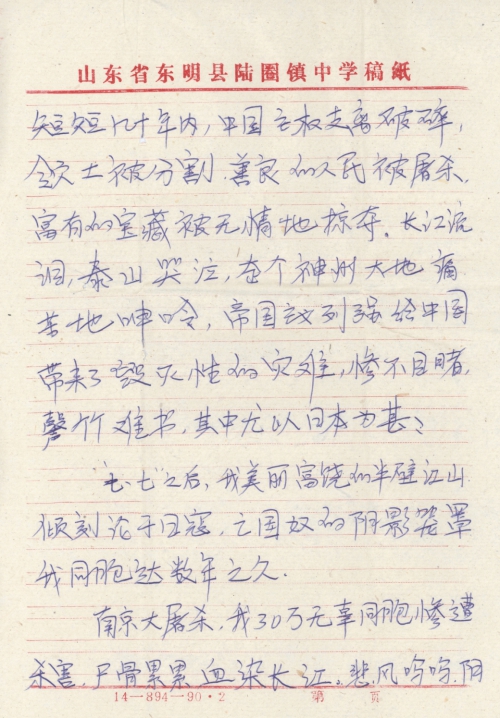 山东省东明县陆圈镇中学稿紙
短短几十年内，中国主权支离破碎，
领土被分割，善良的人民被屠杀，
富有的宝藏被无情地掠夺。长江流
泪，泰山哭泣，整个神州大地痛
苦地呻吟，帝国主义列强给中国
带来了毁灭性的灾难，惨不目睹，
罄竹难书，其中尤以日本为甚？
七·七之后，我美丽富饶的半壁江山
倾刻沦于日寇，亡国奴的阴影笼罩
我同胞达数年之久.
南京大屠杀，我30万无辜同胞惨遭
杀害，尸骨累累，血染长江。悲风呜呜，阴
14—894—90·2 第 页